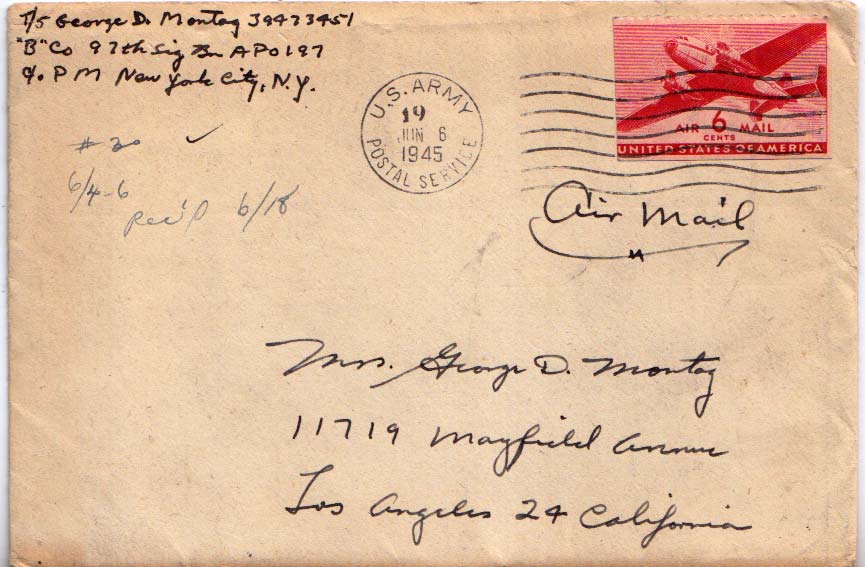 T/5 George D. Montag 39473451
"B" Co 97th Sig Bn APO 197
c/o P M New York City, N.Y.
U.S. ARMY
19
JUN 6
1945
POSTAL SERVICE
AIR 6 MAIL
CENTS
UNITED STATES OF AMERICA
# 30
6/4-6
Rec'd 6/18
Air Mail
Mrs. George D. Montag
11719 Mayfield Avenue
Los Angeles 24 California